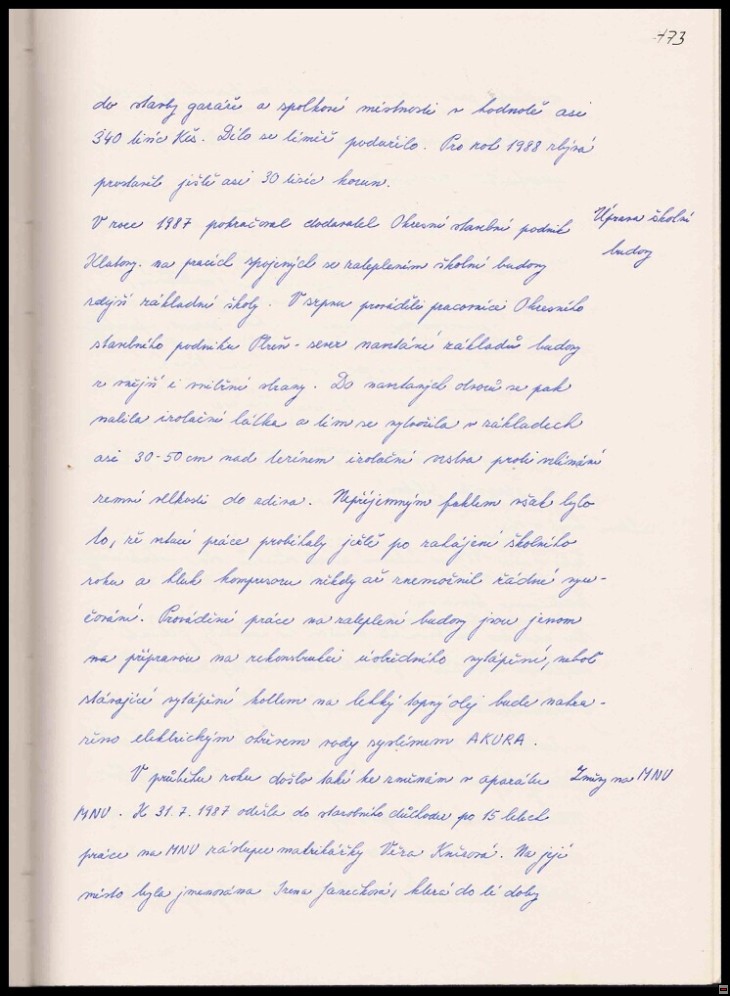 173
do stavby garáže a spolkové místnosti v hodnotě asi
340 tisíc Kčs. Dílo se téměř podařilo. Pro rok 1988 zbývá
prostavět ještě asi 30 tisíc korun.
V roce 1987 pokračoval dodavatel Okresní stavební podnik
Úprava školní
budovy
Klatovy na pracích spojených se zateplením školní budovy
zdejší základní školy. V srpnu prováděli pracovníci Okresního
stavebního podniku Plzeň-sever navrtání základů budovy
z vnější i vnitřní strany. Do navrtaných otvorů se pak
nalila izolační látka a tím se vytvořila v základech
asi 30-50 cm nad terénem izolační vrstva proti vzlínání
zemní vlhkosti do zdiva. Nepříjemným faktem však bylo
to, že vrtací práce probíhaly ještě po zahájení školního
roku a hluk kompresoru někdy až znemožnil řádné vyu-
čování. Prováděné práce na zateplení budovy jsou jenom
na přípravou na rekonstrukci ústředního vytápění, neboť
stávající vytápění kotlem na lehký topný olej bude nahra-
zeno elektrickým ohřevem vody systémem AKURA.
V průběhu roku došlo také ke změnám v aparátu
Změny na MNV
MNV. K 31.7.1987 odešla do starobního důchodu po 15 letech
práce na MNV zástupce matrikářky Věra Knížová. Na její
místo byla jmenována Irena Janečková, která do té doby